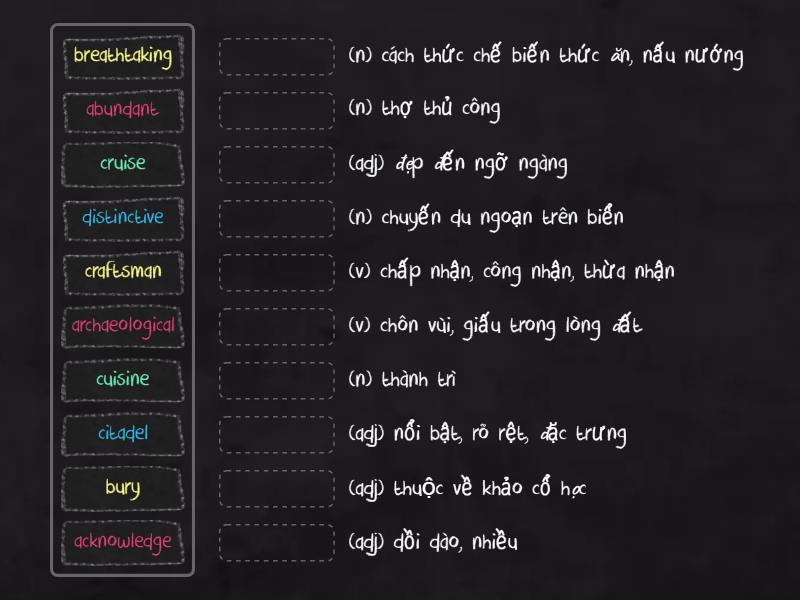 breathtaking
(n) cách thức chế biến thức ăn, nấu nướng
abundant
(n) thợ thủ công
cruise
(adj) đẹp đến ngỡ ngàng
distinctive
(n) chuyến du ngoạn trên biển
craftsman
(v) chấp nhận, công nhận, thừa nhận
archaeological
(v) chôn vùi, giấu trong lòng đất
cuisine
(n) thành trì
citadel
(adj) nổi bật, rõ rệt, đặc trưng
bury
(adj) thuộc về khảo cổ học
acknowledge
(adj) dồi dào, nhiều